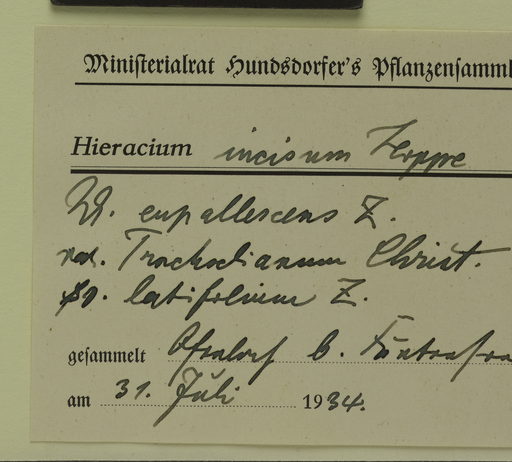 Ministerialrat Hundsdorfer's Pflanzensamml
Hieracium incisum Hoppe
eupallescens Z.
var. Trachselianum Christ.
latifolium Z.
gesammelt b.
am 31. Juli 1934.